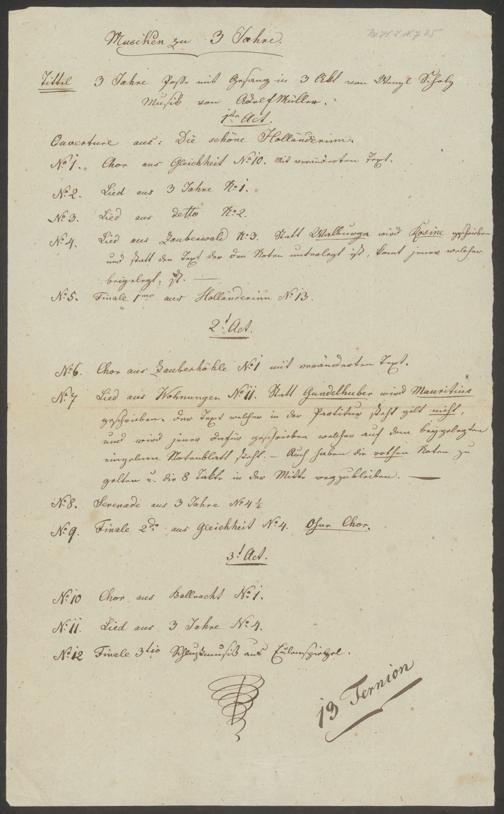 Musiken zu 3 Jahre.
Tittel 3 Jahre Posse mit Gesang in 3 Akt von Wenzl Scholz
Musik von Adolf Müller.
1ter Act.
Ouverture aus: Die schöne Holländerinn.
No 1. Chor aus Gleichheit No 10. mit verändertem Text.
No 2. Lied aus 3 Jahre No 1.
No 3. Lied aus detto No 2.
No 4. Lied aus Zauberwald No 3. Statt Walburga wird Rosine geschrieben
und statt den Text der den Noten unterlegt ist, komt jener welcher
beigelegt ist. —
No 5. Finale 1mo aus Holländerinn No 13.
2t Act.
No 6. Chor aus Zauberhöhle No 1 mit verändertem Text.
No 7 Lied aus Wohnungen No 11. Statt Gundelhuber wird Mauritius
geschrieben. Der Text welcher in der Partitur steht gilt nicht,
und wird jener dafür geschrieben welcher auf dem beygelegten
einzelnen Notenblatt steht. — Auch haben die rothen Noten zu
gelten u. die 8 Takte in der Mitte wegzubleiben. —
No 8. Serenade aus 3 Jahre No 4½
No 9. Finale 2do aus Gleichheit No 4. Ohne Chor.
3t Act.
No 10 Chor aus Ballnacht No 1.
No 11. Lied aus 3 Jahre No 4.
No 12 Finale 3tio Schlußmusik aus Eulenspiegel.
19 Ternion